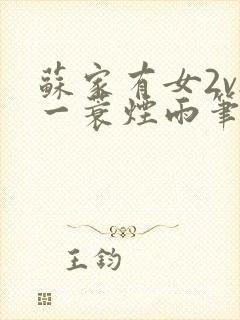 蘇家有女2v
一蓑煙雨筆
王鈞